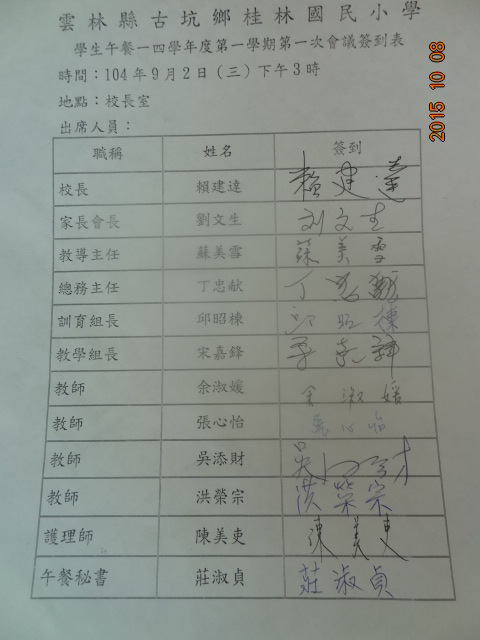 雲林縣古坑鄉桂林國民小學
學生午餐一四學年度第一學期第一次會議簽到表
時間：104年9月2日（三）下午3時
地點：校長室
出席人員：
職稱 姓名 簽到
校長 賴建達 賴建達
家長會長 劉文生 刘文生
教導主任 蘇美雪 蘇美雪
總務主任 丁忠献 丁忠献
訓育組長 邱昭棟 邱昭棟
教學組長 宋嘉鋒
教師 余淑媛 余淑媛
教師 張心怡 張心怡
教師 吳添財 吳添財
教師 洪榮宗 洪榮宗
護理師 陳美吏 陳美吏
午餐秘書 莊淑貞 莊淑貞
2015 10 08